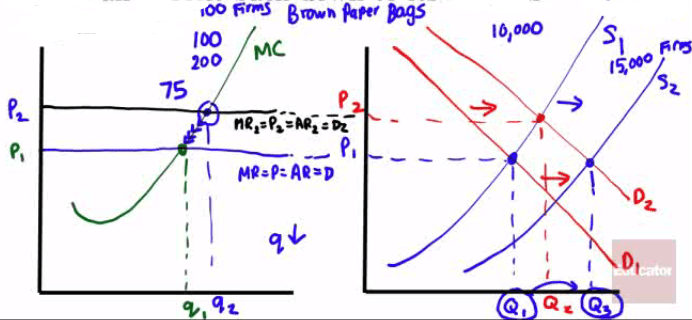 100 Firms Brown Paper Bags
100
200
MC
75
P₂
MR₂=P₂=AR₂=D₂
P₁
MR=P=AR=D
q↓
q₁ q₂
10,000
S₁
15,000 Firms
S₂
P₂
P₁
D₂
D₁
Educator
Q₁ Q₂ Q₃